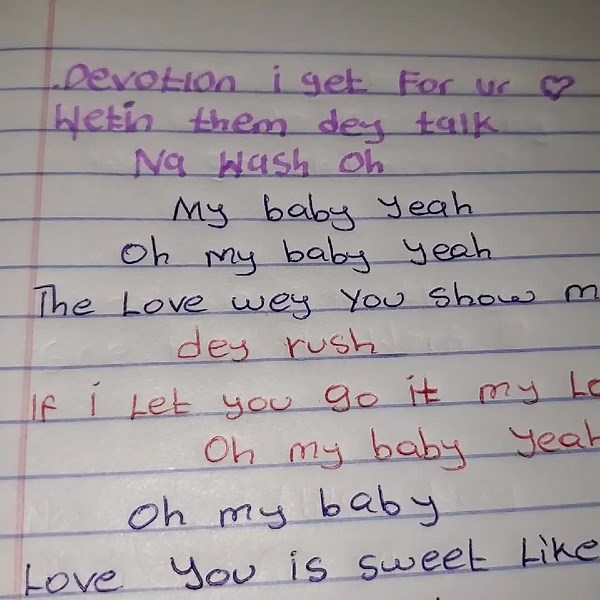 Devotion i get For ur ♡
Wetin them dey talk
Na Wash Oh
My baby yeah
Oh my baby yeah
The Love wey You Show m
dey rush
If i Let you go it my Lo
Oh my baby yeah
Oh my baby
Love You is sweet Like